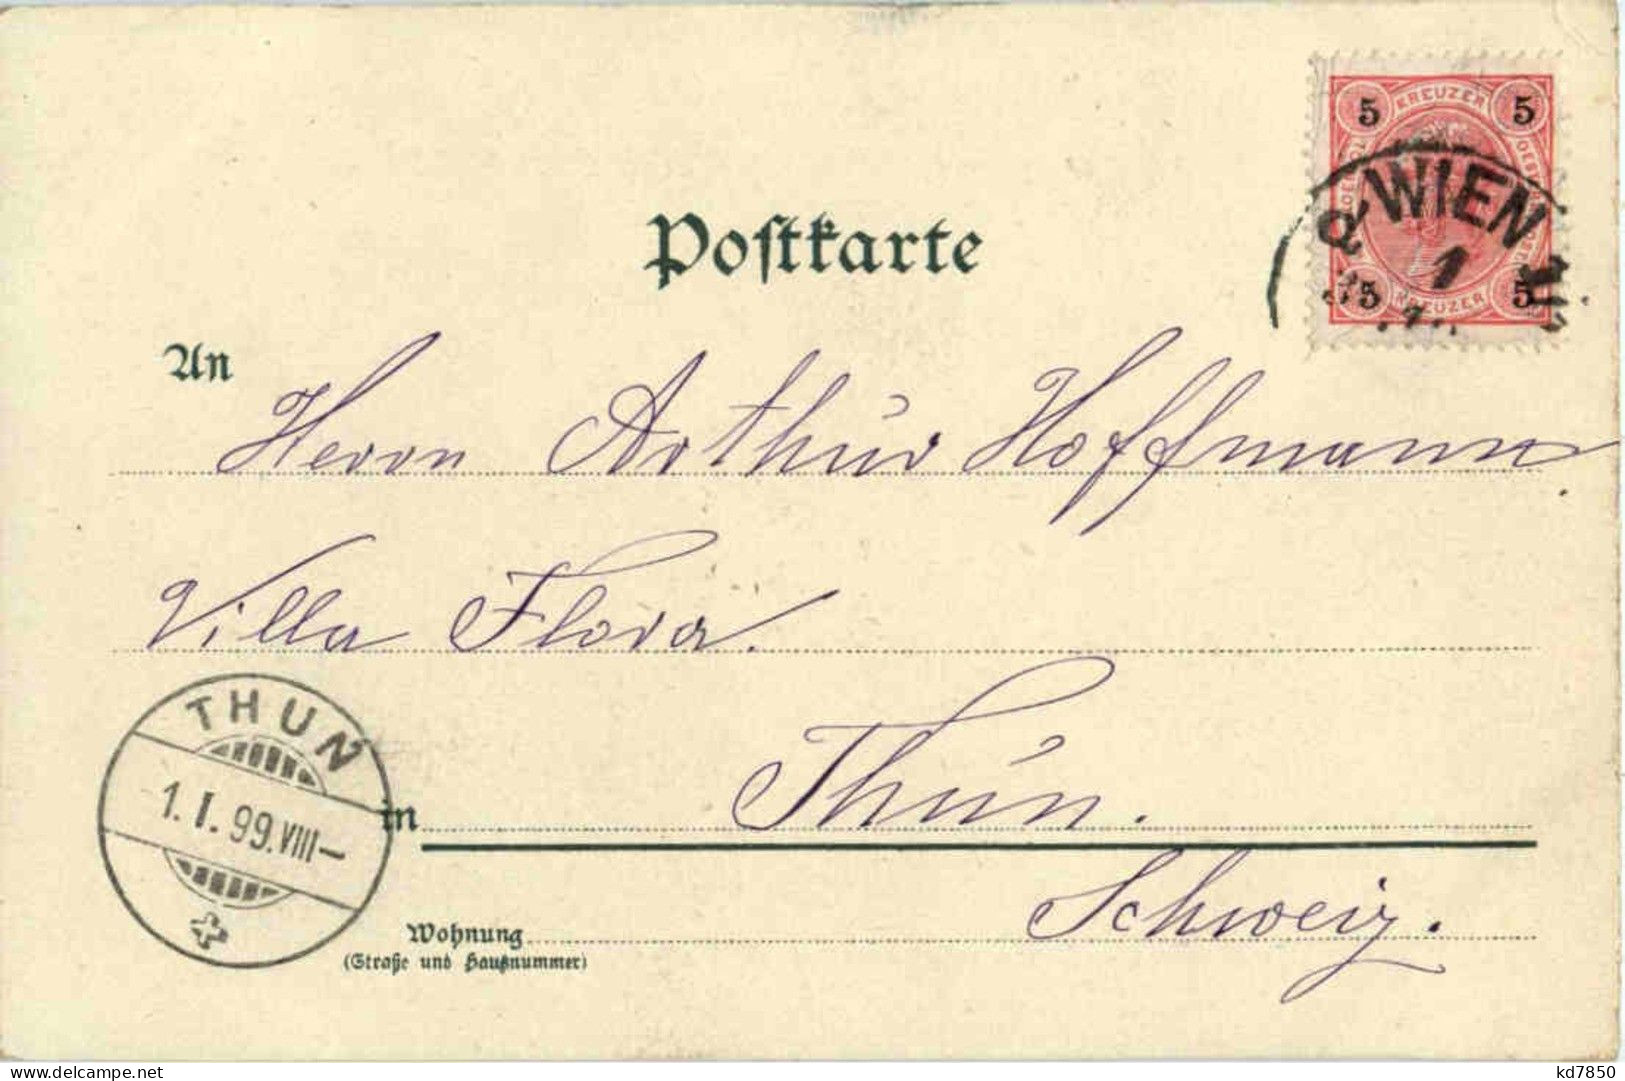 5 KREUZER 5
WIEN
1
5 KREUZER 5
Postkarte
An Herrn Arthur Hoffmann.
Villa Flora.
THUN
1.I.99.VIII—
in Thun.
Schweiz.
Wohnung
(Straße und Hausnummer)
delcampe.net
kd7850